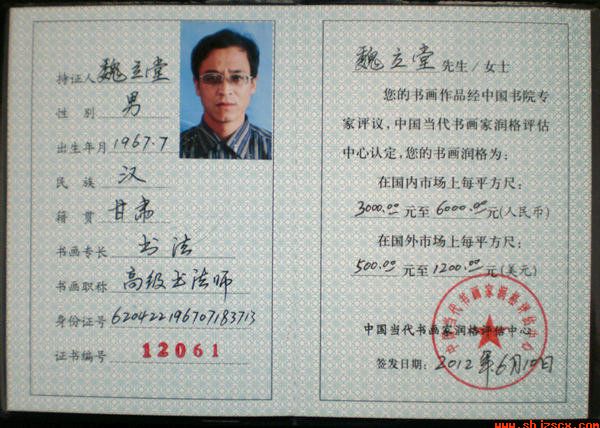 持证人 魏立堂
性 别 男
出生年月 1967.7
民 族 汉
籍 贯 甘肃
书画专长 书法
书画职称 高级书法师
身份证号 620422196707183713
证书编号 12061
魏立堂 先生/女士
您的书画作品经中国书院专
家评议,中国当代书画家润格评估
中心认定,您的书画润格为:
在国内市场上每平方尺:
3000.00 元至 6000.00 元(人民币)
在国外市场上每平方尺:
500.00 元至 1200.00 元(美元)
中国当代书画家润格评估中心
中国当代书画家润格评估中心
签发日期: 2012年6月10日
www.shjzscx.com